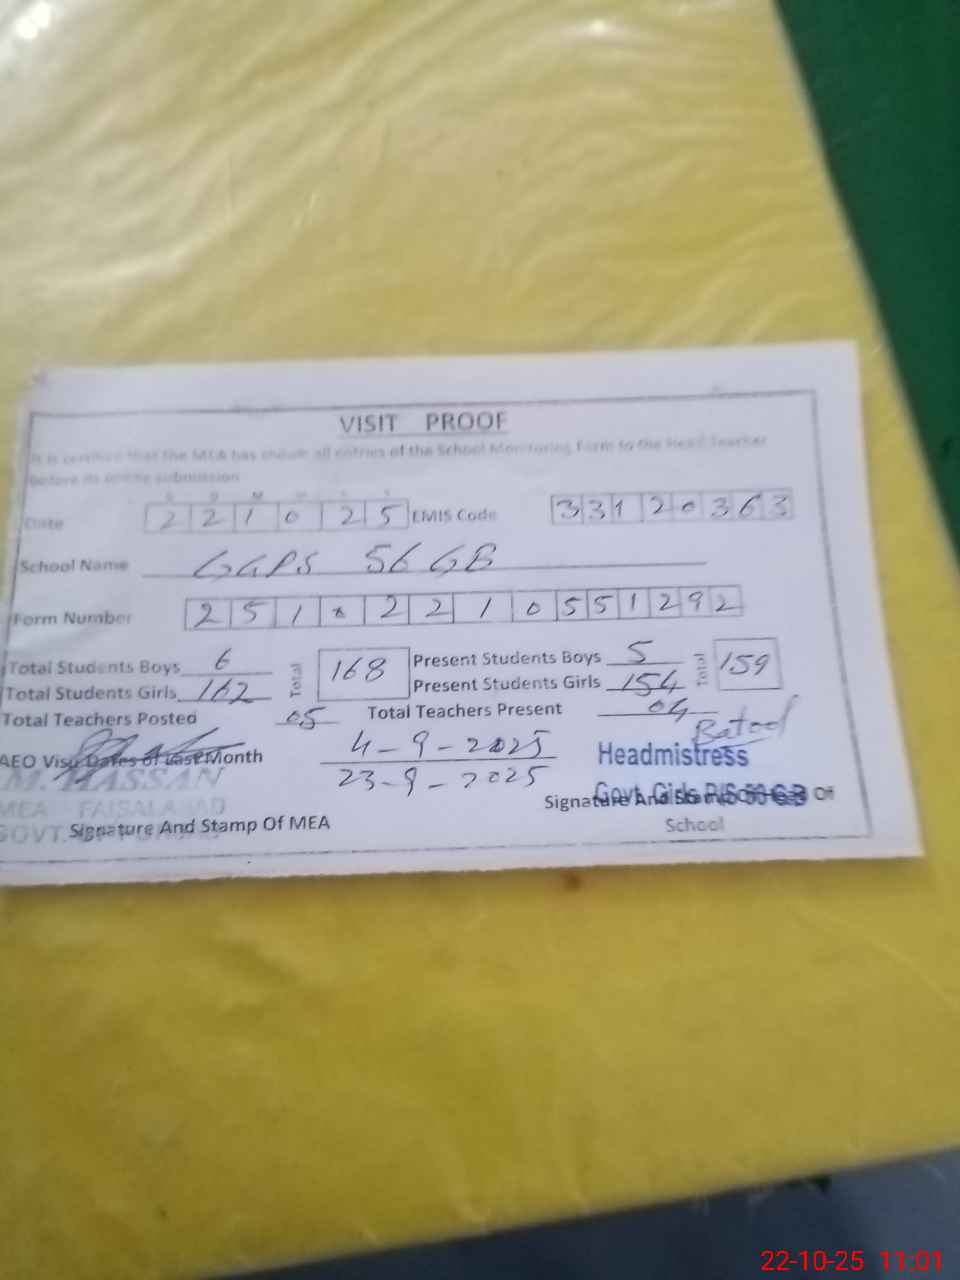 VISIT PROOF
It is certified that the MEA has shown all entries of the School Monitoring Form to the Head Teacher
Before its online submission
D D M M Y Y
Date 2 2 1 0 2 5 EMIS Code 3 3 1 2 0 3 6 3
School Name GGPS 56 GB
Form Number 2 5 1 0 2 2 1 0 5 5 1 2 9 2
Total Students Boys 6 Total 168 Present Students Boys 5 Total 159
Total Students Girls 162 Present Students Girls 154
Total Teachers Posted 05 Total Teachers Present 04
Batool
AEO Visit Dates of Last Month 4-9-2025 Headmistress
23-9-2025
M. HASSAN
MEA FAISALABAD Govt. Girls P/S 56 GB
Signature And Of
GOVT. Signature And Stamp Of MEA School
22-10-25 11:01